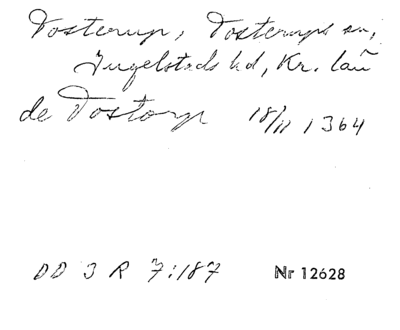 Tosterup, Tosterups sn,
Ingelstads hd, Kr. län
de Tostorp 18/11 1364
DD 3 R 7:187 Nr 12628